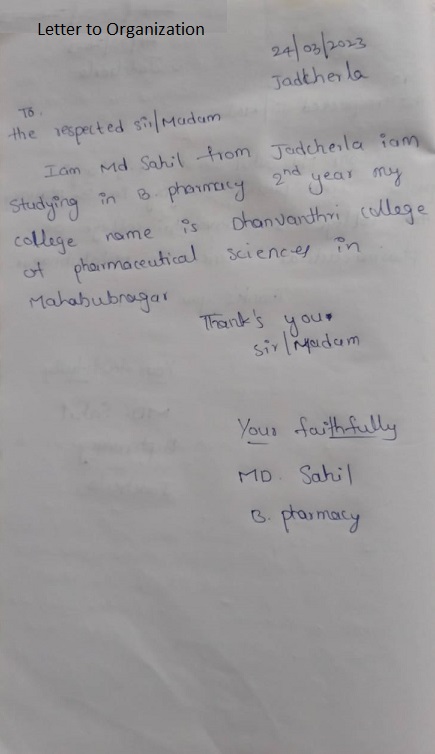 Letter to Organization
24/03/2023
Jadcherla
To.
the respected sir/Madam
Iam Md Sahil from Jadcherla iam
studying in B. pharmacy 2nd year my
college name is Dhanvanthri college
of pharmaceutical sciences in
Mahabubnagar
Thank's you.
sir/Madam
Your faithfully
MD. Sahil
B. pharmacy